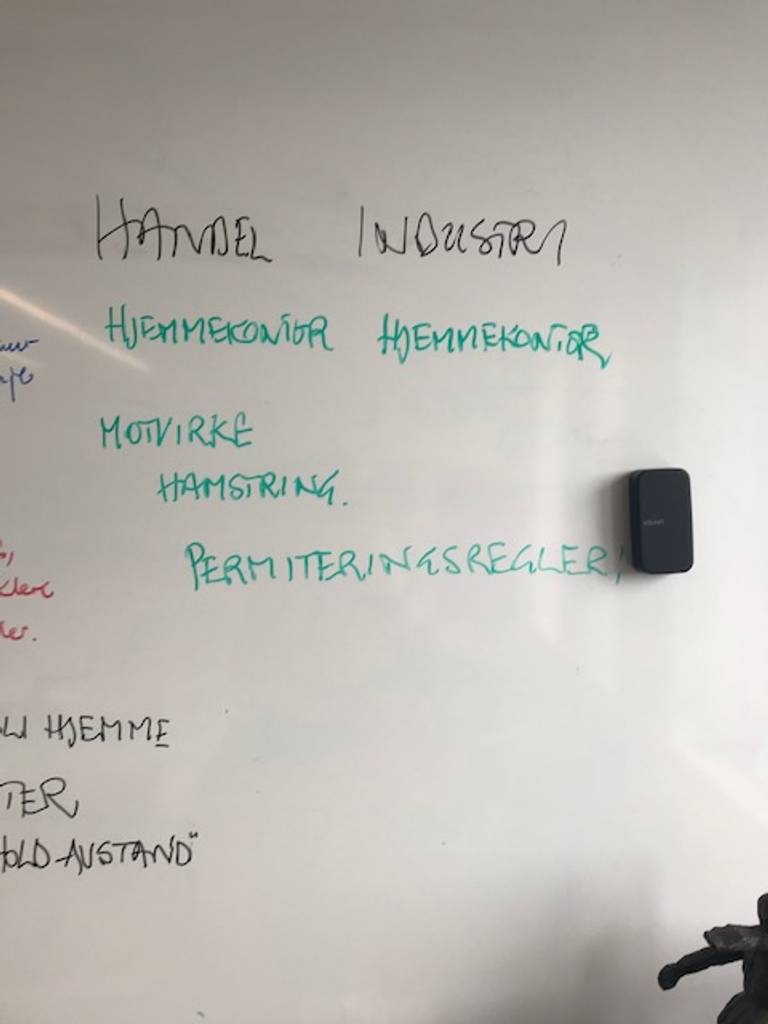 HANDEL INDUSTRI
HJEMMEKONTOR HJEMMEKONTOR
MOTVIRKE
HAMSTRING.
PERMITERINGSREGLER!
HJEMME
TER
HOLD AVSTAND"